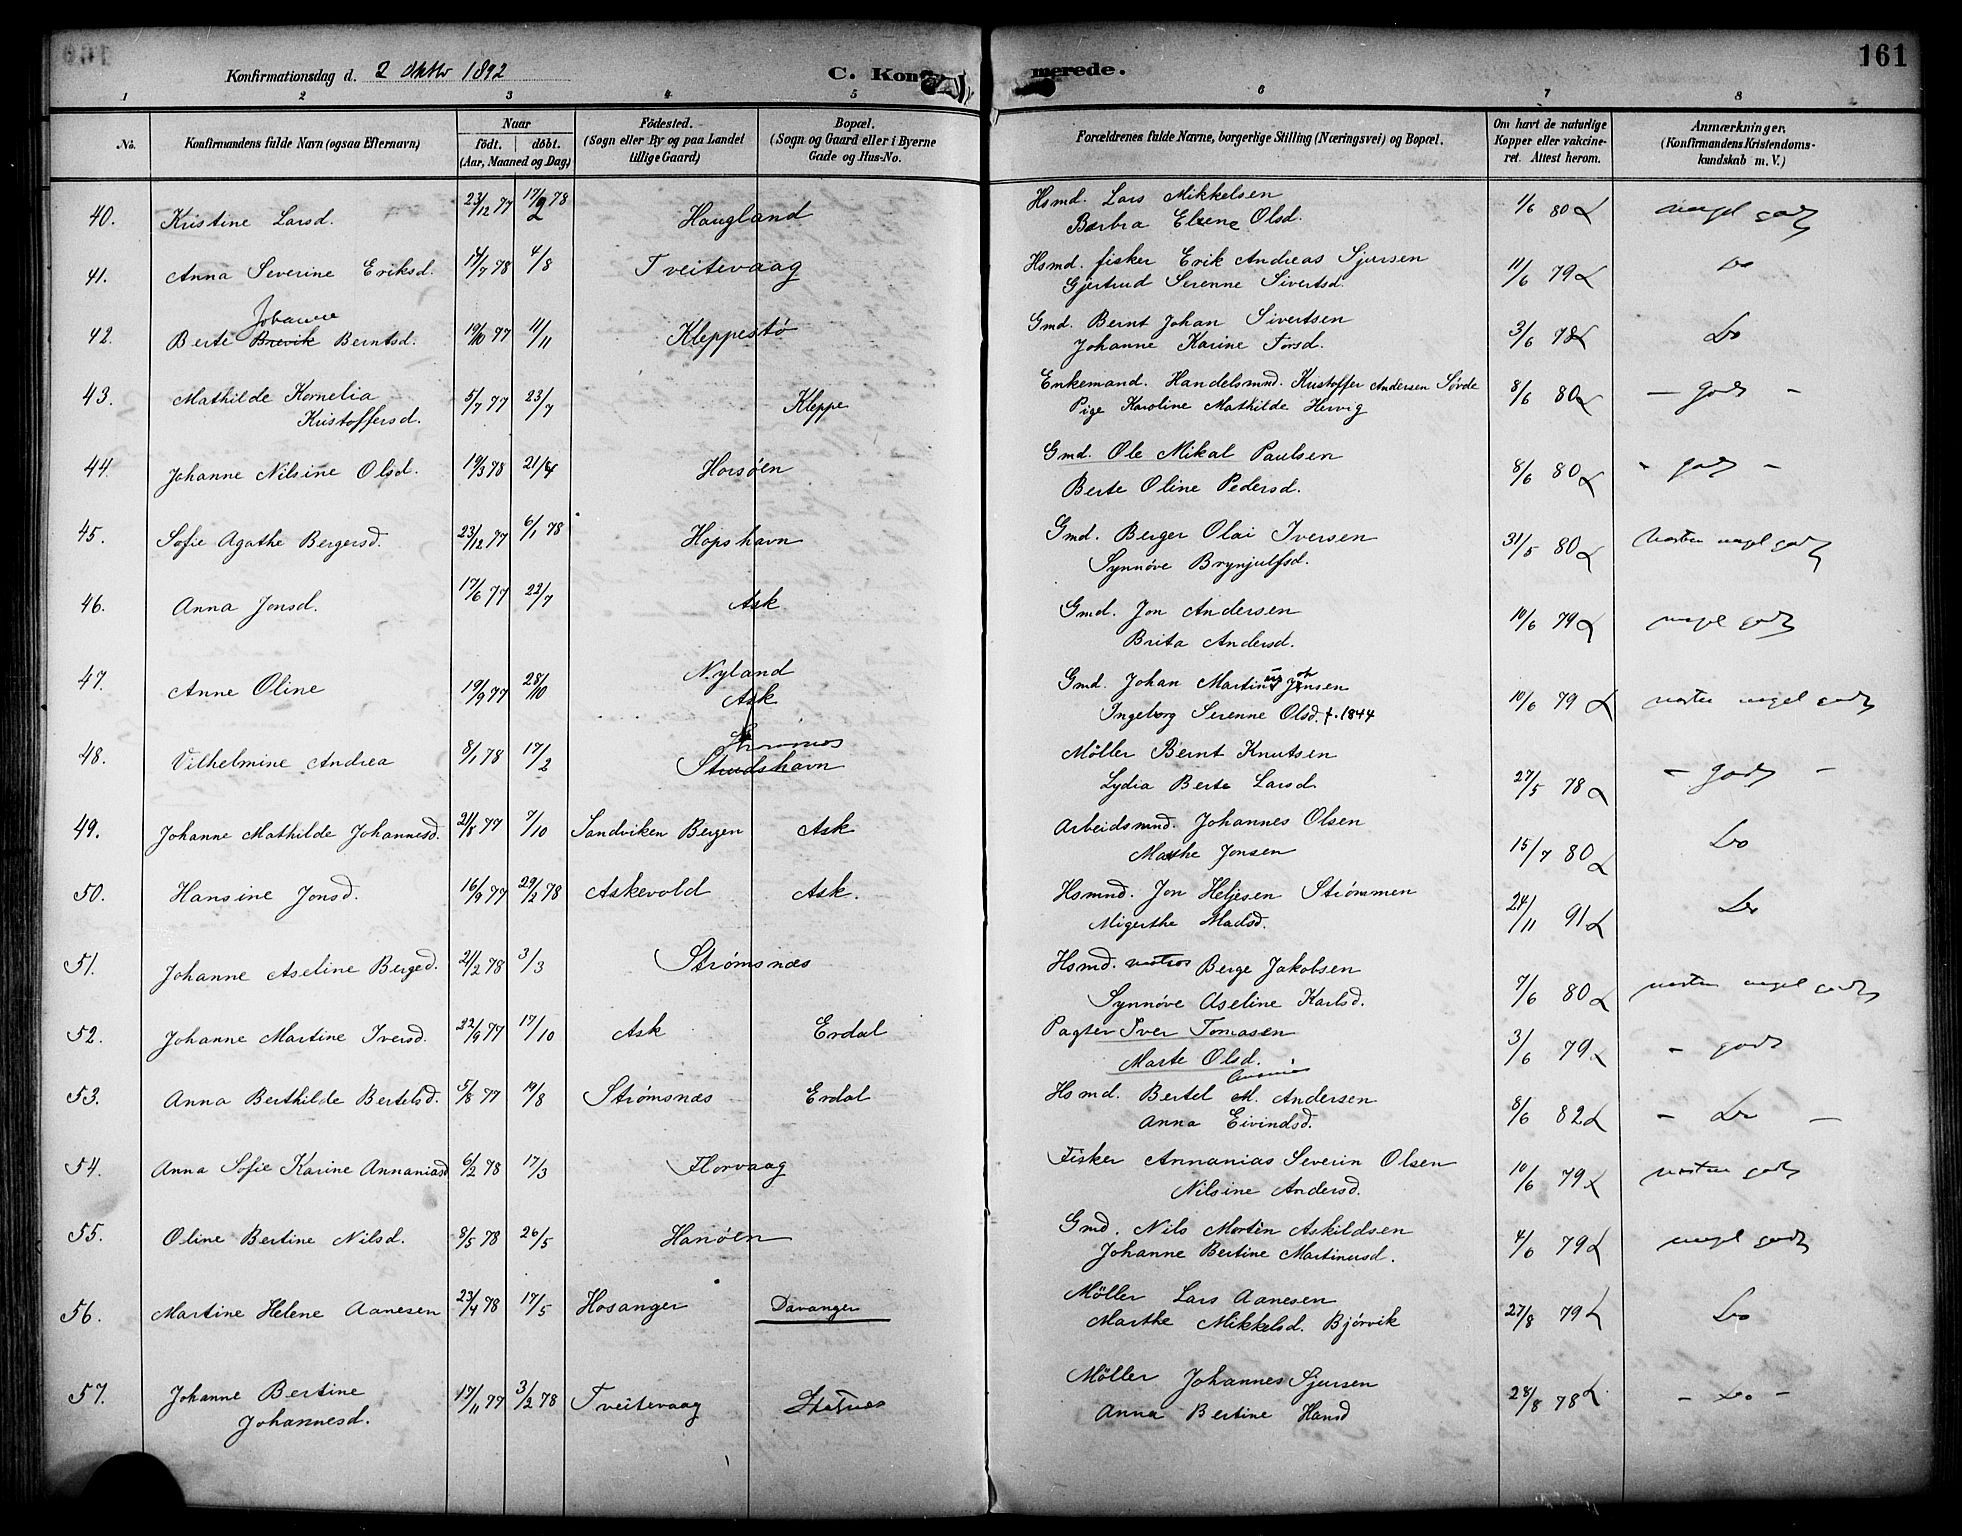 161
Konfirmationsdag d. 2 Oktbr 1892 C. Kon merede.
1 2 3 4 5 6 7 8
No. Konfirmandens fulde Navn (ogsaa Efternavn) Naar født. døbt. (Aar, Maaned og Dag) Fødested. (Sogn eller By og paa Landet tillige Gaard) Bopæl. (Sogn og Gaard eller i Byerne Gade og Hus-No. Forældrenes fulde Navne, borgerlige Stilling (Næringsvei) og Bopæl. Om havt de naturlige Kopper eller vakcineret. Attest herom. Anmærkninger. (Konfirmandens Kristendomskundskab m. V.)
40. Kristine Larsd. 23/12 77 17/2 78 Haugland Hsmd. Lars Mikkelsen 1/6 80 meget godt
Barbra Elene Olsd.
41. Anna Severine Eriksd. 17/7 78 4/8 Tveitevaag Hsmd. fisker Erik Andreas Sjursen 11/6 79 Do
Gjertrud Serenne Sivertsd.
Johanne
42. Berte Brevik Berntsd. 19/10 77 11/11 Kleppestø Gmd. Bernt Johan Sivertsen 3/6 78 Do
Johanne Karine Torsd.
43. Mathilde Kornelia 5/7 77 23/7 Kleppe Enkemand. Handelsmnd. Kristoffer Andersen Søvde 8/6 80 - godt -
Kristoffersd. Pige Karoline Mathilde Hervig
44. Johanne Nilsine Olsd. 19/3 78 21/4 Horsøen Gmd. Ole Mikal Paulsen 8/6 80 - godt -
Berte Oline Pedersd.
45. Sofie Agathe Bergersd. 23/12 77 6/1 78 Hopshavn Gmd. Berger Olai Iversen 31/5 80 næsten meget godt
Synnøve Brynjulfsd.
46. Anna Jonsd. 17/6 77 22/7 Ask Gmd. Jon Andersen 10/6 79 meget godt
Brita Andersd.
47. Anne Oline 19/9 77 28/10 Nyland Gmd. Johan Martin Jensen 10/6 79 næsten meget godt
Ask Ingeborg Serenne Olsd. f. 1844
48. Vilhelmine Andrea 8/1 78 17/2 Strømsnes Møller Bernt Knutsen 27/5 78 - godt -
Strudshavn Lydia Berte Larsd.
49. Johanne Mathilde Johannesd. 21/8 77 7/10 Sandviken Bergen Ask Arbeidsmnd. Johannes Olsen 15/7 80 Do
Marthe Jonsen
50. Hansine Jonsd. 16/9 77 29/2 78 Askevold Ask. Hsmnd. Jon Heljesen Strømmen 24/11 91 Do
Migerthe Madsd.
51. Johanne Aseline Berged. 21/2 78 3/3 Strømsnæs Hsmd. matros Berge Jakobsen 7/6 80 næsten meget godt
Synnøve Aseline Karlsd.
52. Johanne Martine Iversd. 22/9 77 17/10 Ask Erdal Pagter Iver Tomasen 3/6 79 - godt
Marte Olsd.
53. Anna Berthilde Bertelsd. 5/8 77 19/8 Strømsnæs Erdal Hsmd. Bertel M. Andersen 8/6 82 - Do -
Anna Eivindsd.
54. Anna Sofie Karine Annaniasd 6/2 78 17/3 Florvaag Fisker Annanias Severin Olsen 10/6 79 næsten godt
Nilsine Andersd.
55. Oline Bertine Nilsd. 8/5 78 26/5 Hanøen Gmd. Nils Morten Askildsen 4/6 79 meget godt
Johanne Bertine Martinusd.
56. Martine Helene Aanesen 23/4 78 17/5 Hosanger Davanger Møller Lars Aanesen 27/8 79 Do
Marthe Mikkelsd. Bjørvik
57. Johanne Bertine 17/11 77 3/2 78 Tveitevaag Møller Johannes Sjursen 28/8 78 - Do -
Johannesd. Anna Bertine Hansd